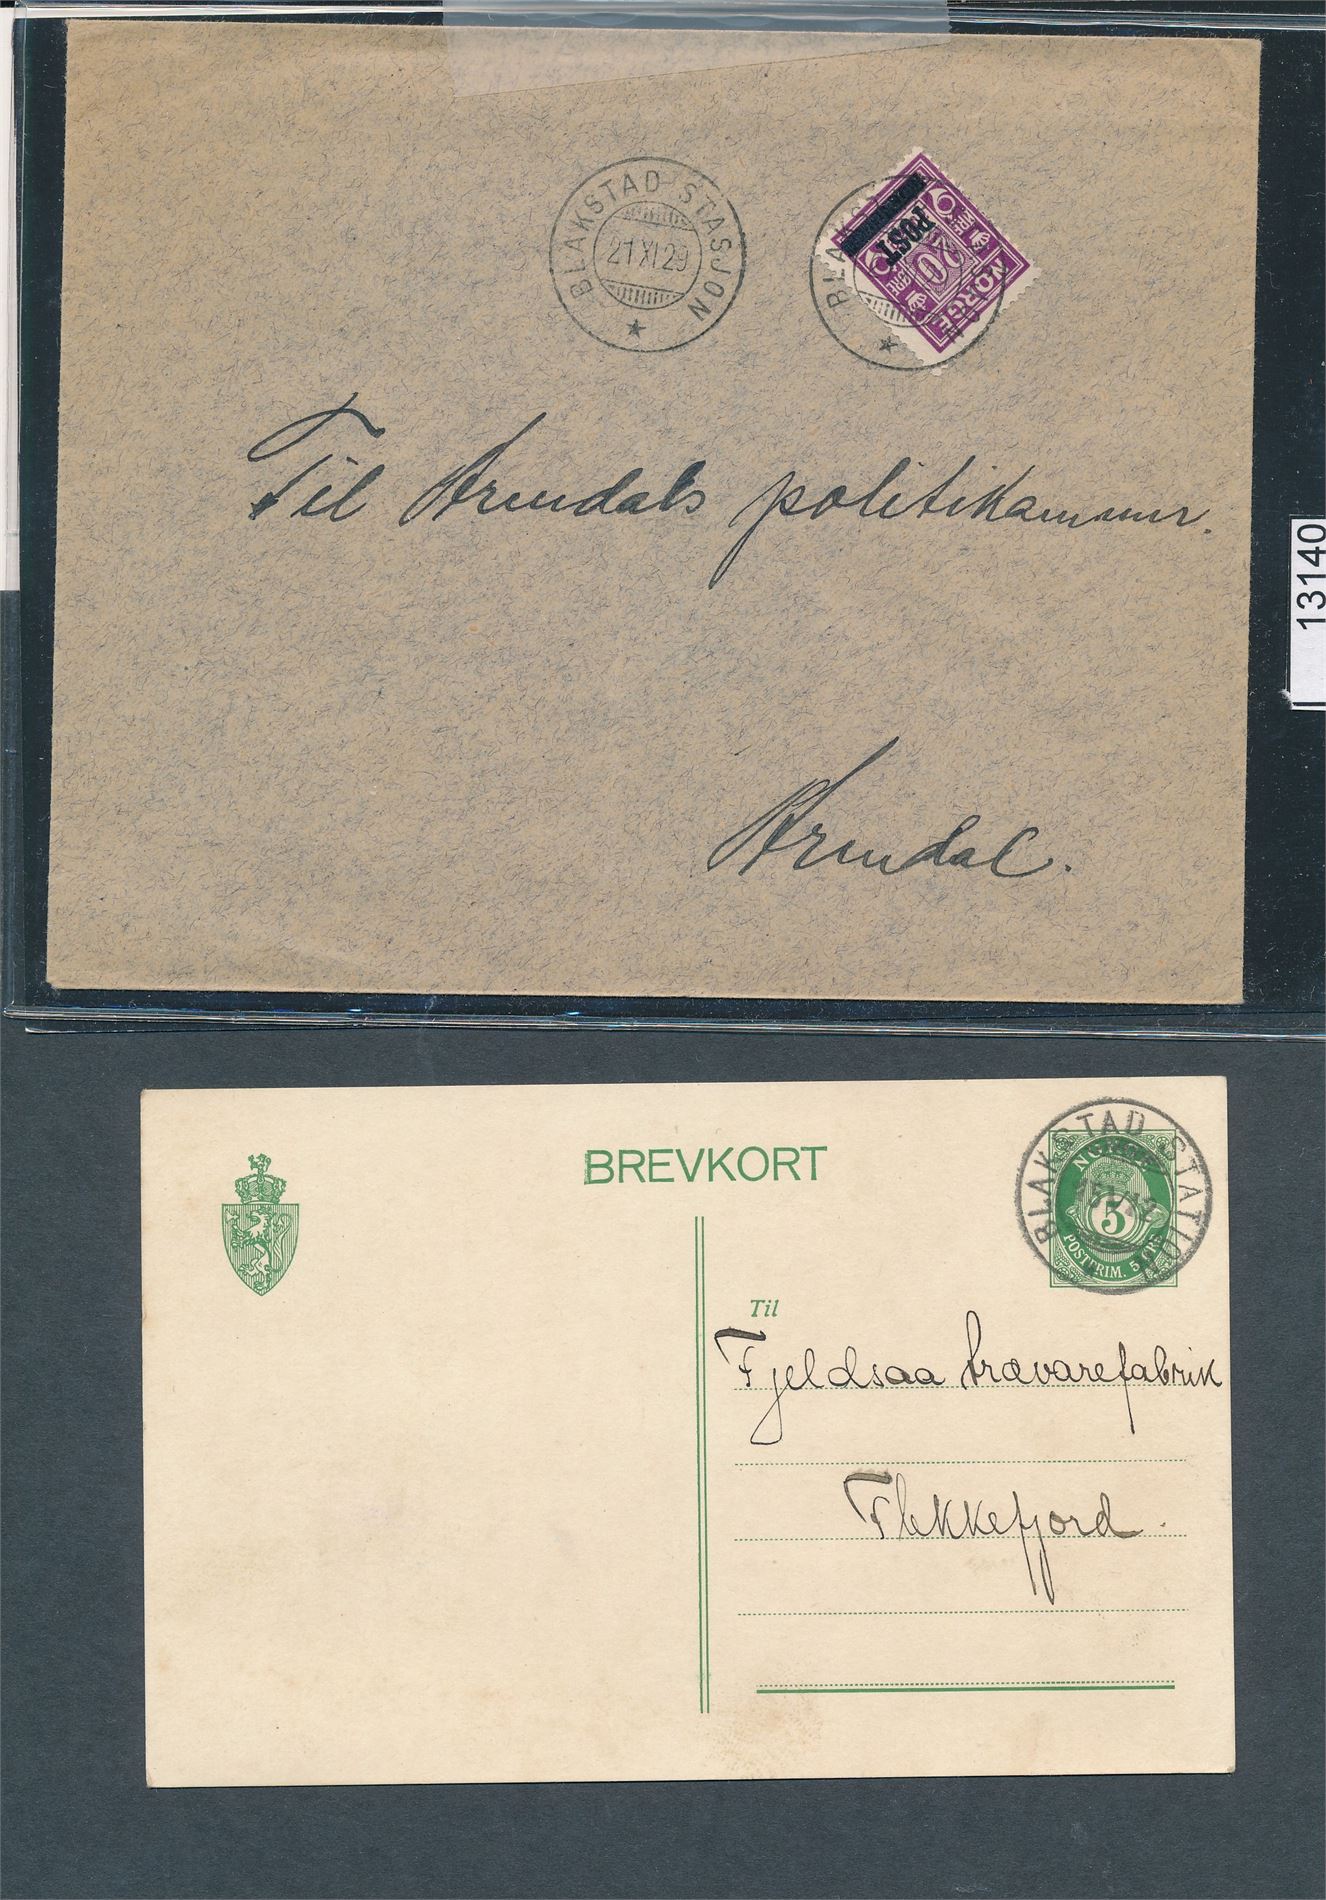 BLAKSTAD STASJON
21 XI 29
BLAKS
POST
NORGE
20
ØRE
ØRE
Til Arendals politikammer.
Arendal.
13140
BREVKORT
BLAKSTAD STATION
NORGE
5
POSTFRIM. 5 ØRE
Til
Fjeldsaa trævarefabrik
Flekkefjord.